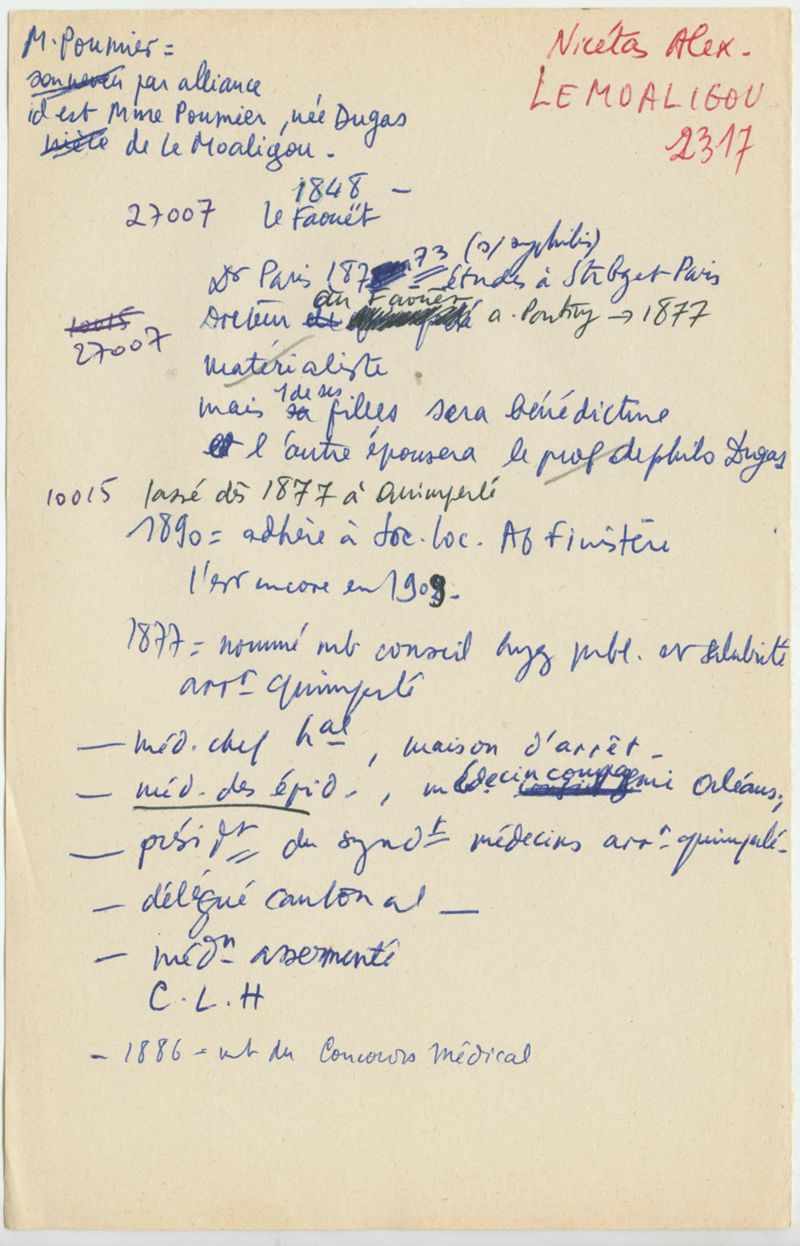 M. Poumier =
son neveu par alliance
id est Mme Poumier, née Dugas
nièce de Le Moaligou.
Nicétas Alex.
LE MOALIGOU
2317
1848 -
27007 Le Faouët
Dr Paris 187 73 (s/ syphilis)
= études à Strbg et Paris
10015
27007
Docteur du Faouët a. Pontivy → 1877
matérialiste
mais 1 de ses filles sera bénédictine
et l'autre épousera le prof de philo Dugas
10015 passé dès 1877 à Quimperlé
1890 = adhère à Soc. loc. AG Finistère
l'est encore en 1909.
1877 = nommé mb conseil hyg publ. et salubrité
arrt Quimperlé
— méd. chef hal, maison d'arrêt -
— méd. des épid., médecin compagnie Orléans,
— présidt du syndt médecins arrt quimperlé -
— délégué cantonal —
— médn assermenté
C. L. H
- 1886 = mb du Concours Médical